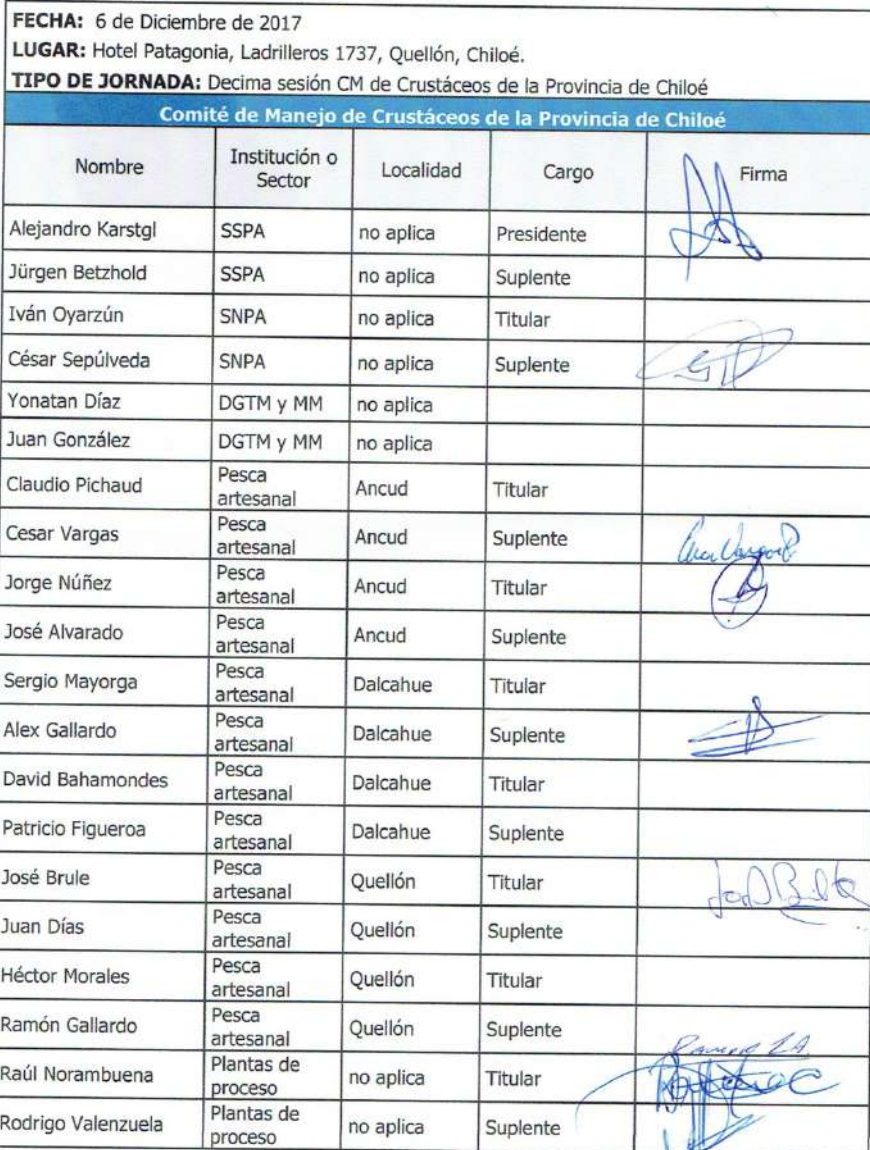 FECHA: 6 de Diciembre de 2017
LUGAR: Hotel Patagonia, Ladrilleros 1737, Quellón, Chiloé.
TIPO DE JORNADA: Decima sesión CM de Crustáceos de la Provincia de Chiloé
Comité de Manejo de Crustáceos de la Provincia de Chiloé
Nombre Institución o Sector Localidad Cargo Firma
Alejandro Karstgl SSPA no aplica Presidente
Jürgen Betzhold SSPA no aplica Suplente
Iván Oyarzún SNPA no aplica Titular
César Sepúlveda SNPA no aplica Suplente
Yonatan Díaz DGTM y MM no aplica
Juan González DGTM y MM no aplica
Claudio Pichaud Pesca artesanal Ancud Titular
Cesar Vargas Pesca artesanal Ancud Suplente
Jorge Núñez Pesca artesanal Ancud Titular
José Alvarado Pesca artesanal Ancud Suplente
Sergio Mayorga Pesca artesanal Dalcahue Titular
Alex Gallardo Pesca artesanal Dalcahue Suplente
David Bahamondes Pesca artesanal Dalcahue Titular
Patricio Figueroa Pesca artesanal Dalcahue Suplente
José Brule Pesca artesanal Quellón Titular
Juan Días Pesca artesanal Quellón Suplente
Héctor Morales Pesca artesanal Quellón Titular
Ramón Gallardo Pesca artesanal Quellón Suplente
Raúl Norambuena Plantas de proceso no aplica Titular
Rodrigo Valenzuela Plantas de proceso no aplica Suplente